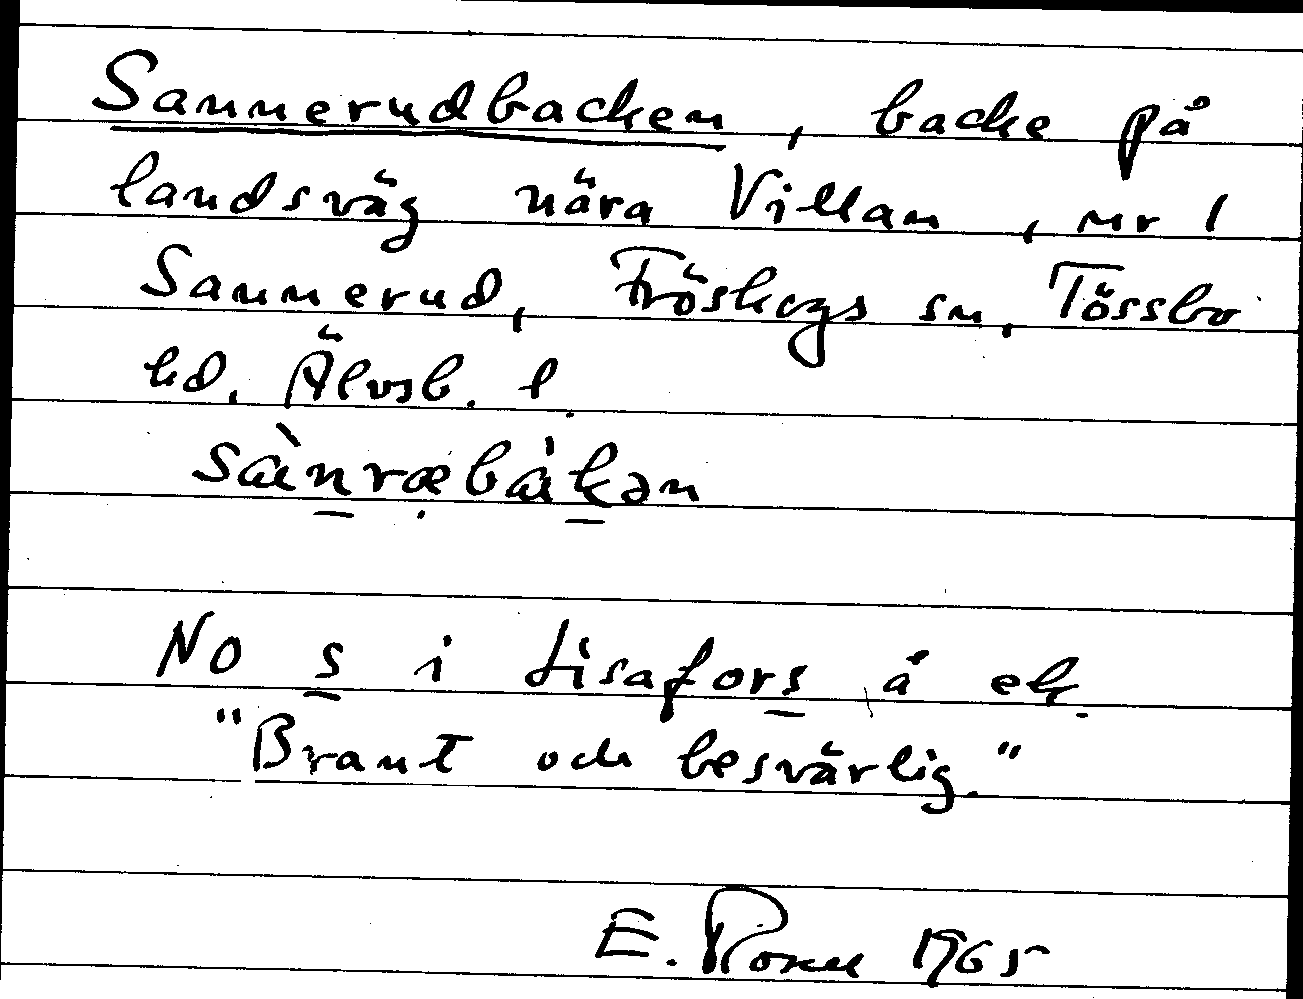 Sannerudbacken, backe på
landsväg nära Villan, nr 1
Sannerud, Fröskogs sn, Tössbo
hd. Älvsb. l.
sànræbàkən
No s i Lisafors å ek.
"Brant och besvärlig."
E. 1965